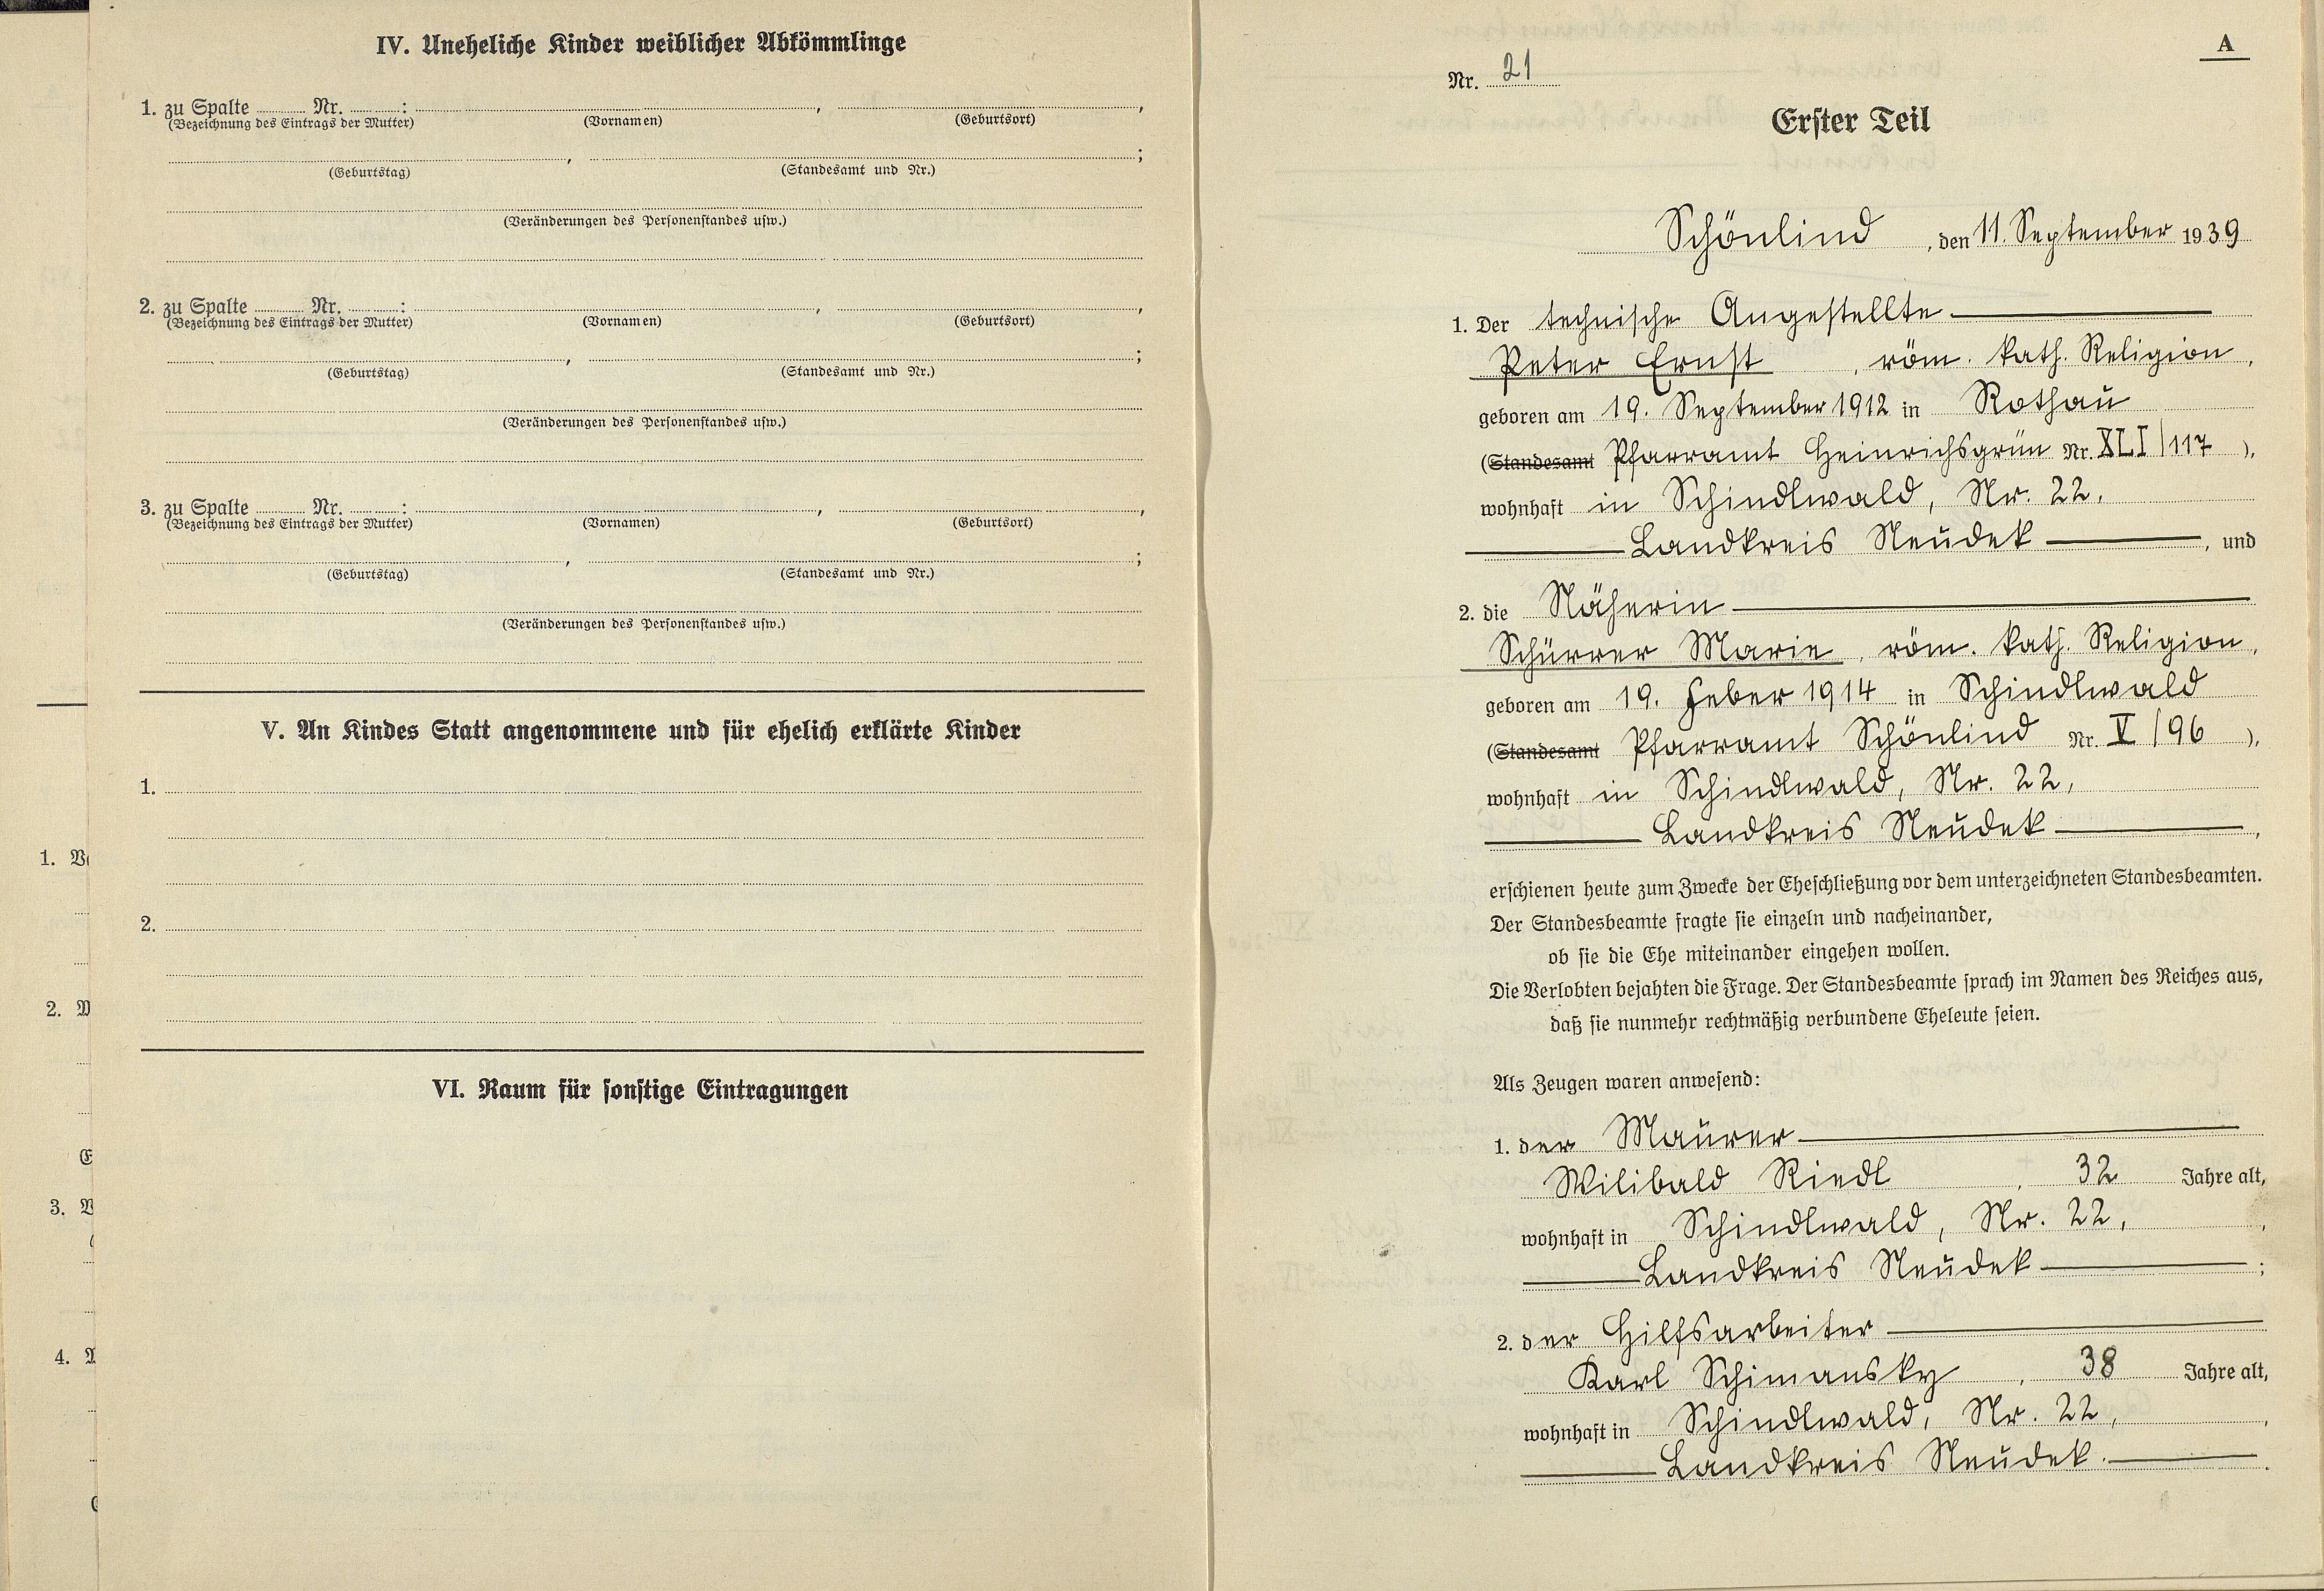 IV. Uneheliche Kinder weiblicher Abkömmlinge
1. zu Spalte ........ Nr. ........: ........, ........,
(Bezeichnung des Eintrags der Mutter) (Vornamen) (Geburtsort)
........, ........;
(Geburtstag) (Standesamt und Nr.)
(Veränderungen des Personenstandes usw.)
2. zu Spalte ........ Nr. ........: ........, ........,
(Bezeichnung des Eintrags der Mutter) (Vornamen) (Geburtsort)
........, ........;
(Geburtstag) (Standesamt und Nr.)
(Veränderungen des Personenstandes usw.)
3. zu Spalte ........ Nr. ........: ........, ........,
(Bezeichnung des Eintrags der Mutter) (Vornamen) (Geburtsort)
........, ........;
(Geburtstag) (Standesamt und Nr.)
(Veränderungen des Personenstandes usw.)
V. An Kindes Statt angenommene und für ehelich erklärte Kinder
1.
2.
VI. Raum für sonstige Eintragungen
A
Nr. 21
Erster Teil
Schönlind, den 11. September 1939
1. Der technische Angestellte
Peter Ernst, röm. kath. Religion,
geboren am 19. September 1912 in Rothau
(Standesamt Pfarramt Heinrichsgrün Nr. XLI/117),
wohnhaft in Schindlwald, Nr. 22,
Landkreis Neudek, und
2. die Näherin
Schürrer Marie, röm. kath. Religion,
geboren am 19. Feber 1914 in Schindlwald
(Standesamt Pfarramt Schönlind Nr. V/96),
wohnhaft in Schindlwald, Nr. 22,
Landkreis Neudek,
erschienen heute zum Zwecke der Eheschließung vor dem unterzeichneten Standesbeamten.
Der Standesbeamte fragte sie einzeln und nacheinander,
ob sie die Ehe miteinander eingehen wollen.
Die Verlobten bejahten die Frage. Der Standesbeamte sprach im Namen des Reiches aus,
daß sie nunmehr rechtmäßig verbundene Eheleute seien.
Als Zeugen waren anwesend:
1. der Maurer
Wilibald Riedl, 32 Jahre alt,
wohnhaft in Schindlwald, Nr. 22,
Landkreis Neudek;
2. der Hilfsarbeiter
Karl Schimansky, 38 Jahre alt,
wohnhaft in Schindlwald, Nr. 22,
Landkreis Neudek.